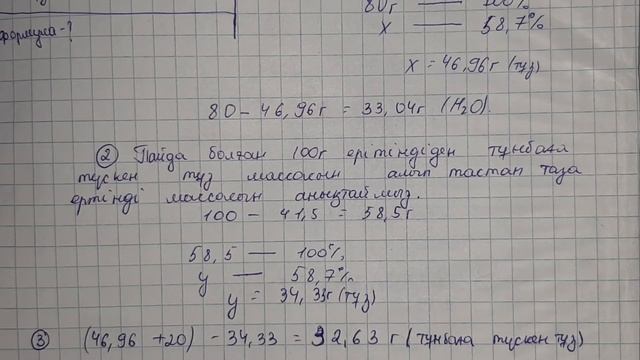 формула-?
80г — 100%
x — 58,7%
x = 46,96г (туз)
80 - 46,96г = 33,04г (H₂O).
② Пайда болған 100г ерітіндіден тұнбаға
түскен тұз массасын алып тастап таза
ертінді массасын анықтаймыз.
100 - 41,5 = 58,5г
58,5 — 100%
y — 58,7%
y = 34,33г (туз)
③ (46,96 + 20) - 34,33 = 32,63 г (тұнбаға түскен тұз)